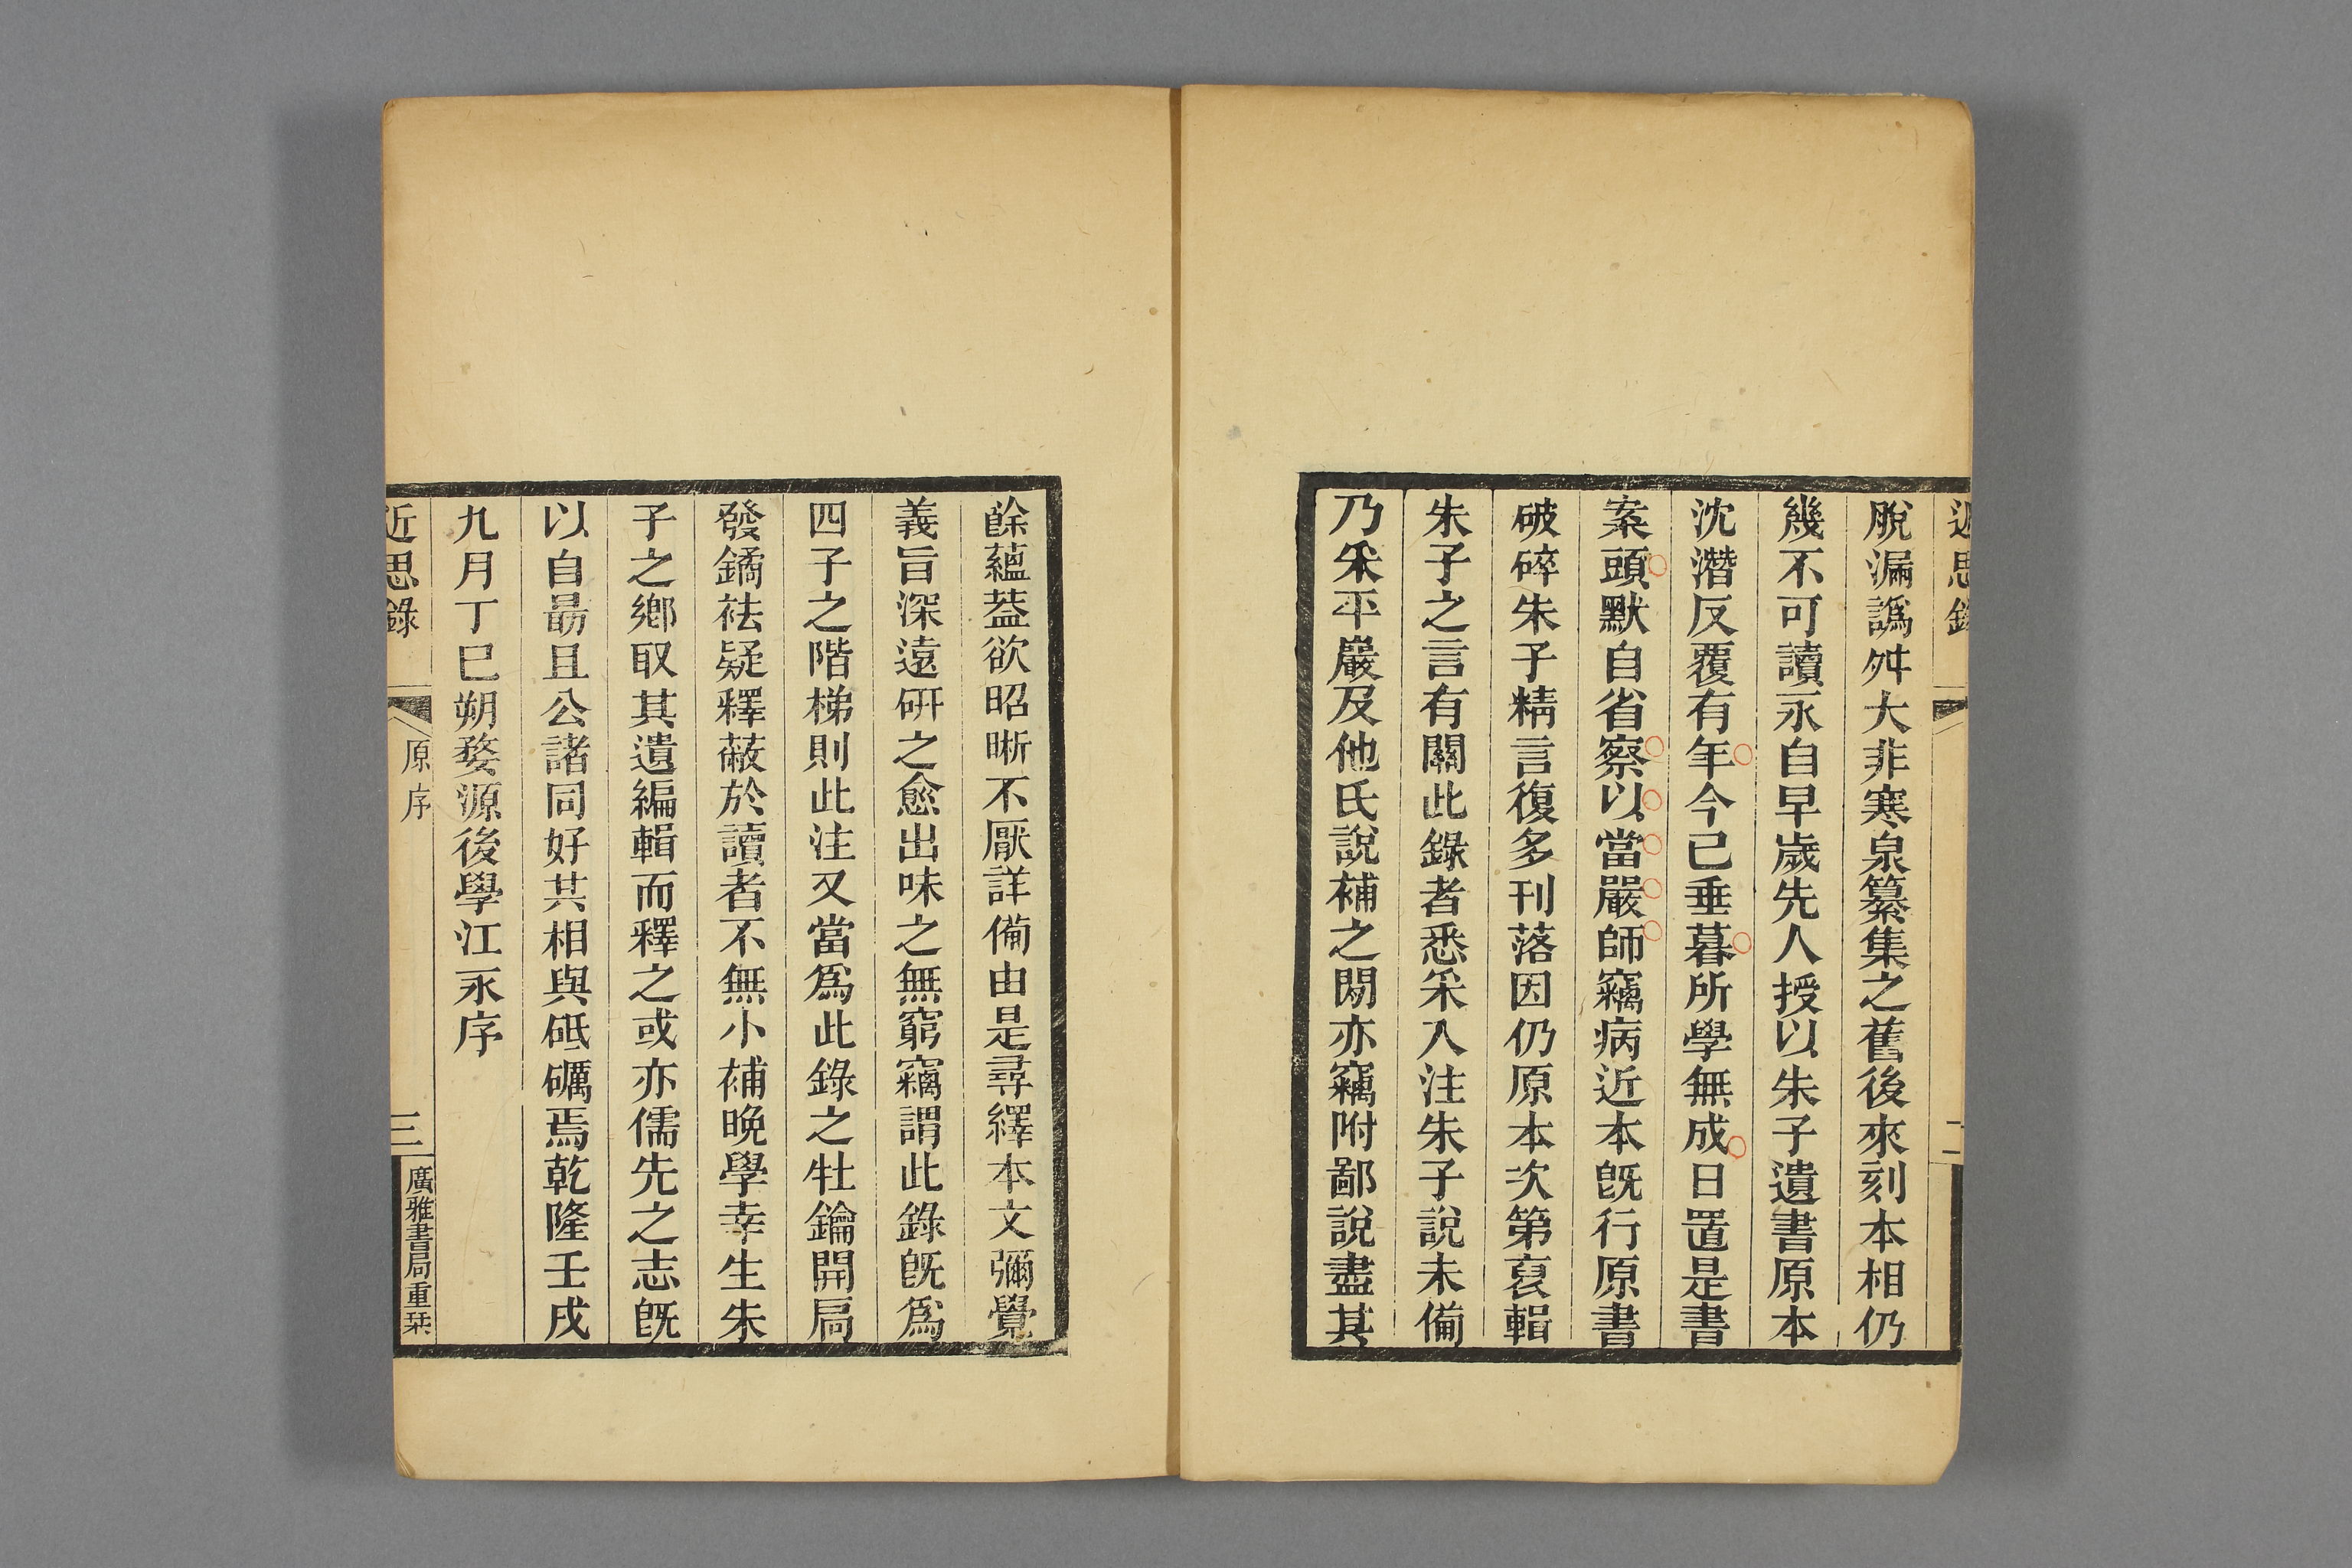 近思錄
二
脫漏譌舛大非寒泉纂集之舊後來刻本相仍
幾不可讀永自早歲先人授以朱子遺書原本
沈潛反覆有年今已垂暮所學無成日置是書
案頭默自省察以當嚴師竊病近本旣行原書
破碎朱子精言復多刊落因仍原本次第裒輯
朱子之言有關此錄者悉采入注朱子說未備
乃采平巖及他氏說補之閒亦竊附鄙說盡其
餘蘊葢欲昭晣不厭詳備由是尋繹本文彌覺
義旨深遠硏之愈出味之無窮竊謂此錄旣爲
四子之階梯則此注又當爲此錄之牡鑰開扃
發鐍袪疑釋蔽於讀者不無小補晚學幸生朱
子之鄉取其遺編輯而釋之或亦儒先之志旣
以自勗且公諸同好共相與砥礪焉乾隆壬戌
九月丁巳朔婺源後學江永序
近思錄
原序
三
廣雅書局重栞